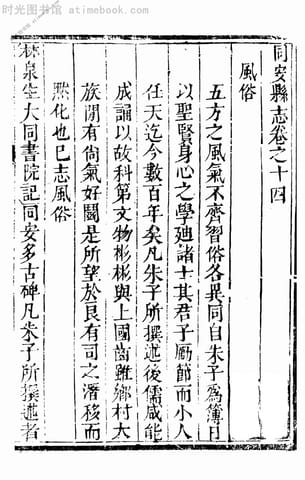 时光图书馆 - atimebook.com
同安縣志卷之十四
風俗
五方之風氣不齊習俗各異同自朱子為簿日
以聖賢身心之學廸諸士其君子勵節而小人
任天迄今數百年矣凡朱子所撰述後儒咸能
成誦以故科第文物彬彬與上國齒雖鄉村大
族間有尚氣好鬪是所望於良有司之潛移而
黙化也已志風俗
林泉生大同書院記同安多古碑凡朱子所撰述者